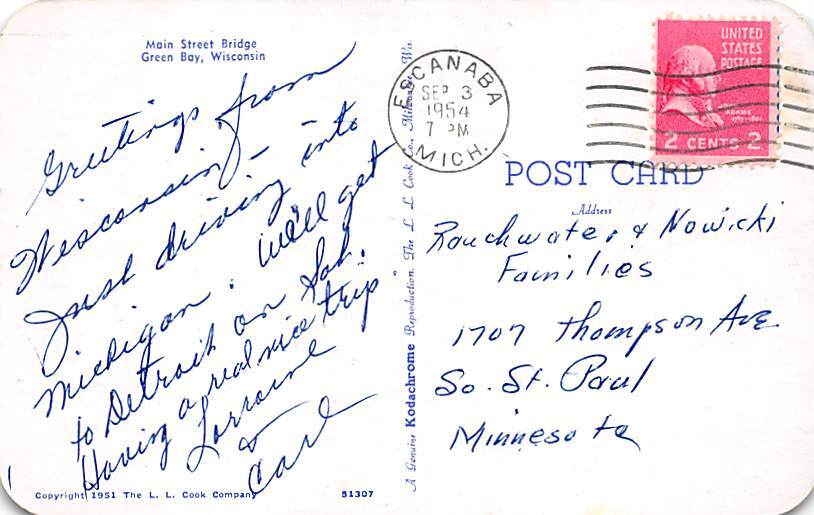 Main Street Bridge
Green Bay, Wisconsin
Greetings from
Wisconsin -
Just driving into
Michigan. We'll get
to Detroit on Sat.
Having a real nice trip
Lorraine
&
Carl
Copyright 1951 The L. L. Cook Company
51307
A Genuine Kodachrome Reproduction. The L. L. Cook Co., Milwaukee, Wis.
ESCANABA
SEP 3
1954
7 PM
MICH.
UNITED
STATES
POSTAGE
ADAMS
2 CENTS 2
POST CARD
Address
Rauchwater & Nowicki
Families
1707 Thompson Ave.
So. St. Paul
Minnesota